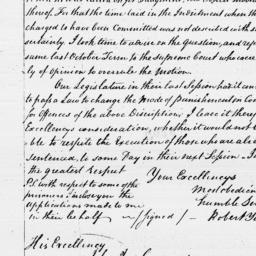 thereof. For that the time laid in the Indictment when th
charged to have been Committed was not described with s
certainty. I took time to advise on the Question, and rep
same last October Term to the supreme Court who were
ly of Opinion to overrule the Motion.
Our Legislature in their last Session has it can
to pass a Law to change the mode of Punishment on Con
for Offences of the above Discription, I leave it there
Excellencys consideration, whether it would not b
able to respite the Execution of those who are al
sentenced, to some Day in their next Session. I
the greatest respect
Your Excellencys
P.S. with respect to some of the
prisoners I inclose you the
Applications made to me
in their behalf
most obedien
humble Ser
(signed)
Robert
His Excellency